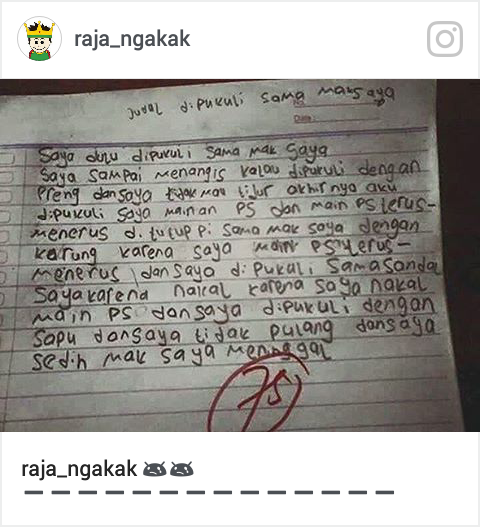 raja_ngakak
Judal dipukuli sama mak saya
No.
Date:
Saya dulu dipukuli sama mak saya
Saya sampai menangis kalau dipukuli dengan
Preng dan saya tidak mau tilur akhirnya aku
dipukuli saya mainan PS dan main PS terus-
menerus di tutup pi sama mak saya dengan
karung karena saya main PS terus-
menerus dan saya dipukuli sama sandal
Saya karena nakal karena saya nakal
main PS dan saya dipukuli dengan
sapu dan saya tidak pulang dan saya
sedih mak saya meninggal
75
raja_ngakak